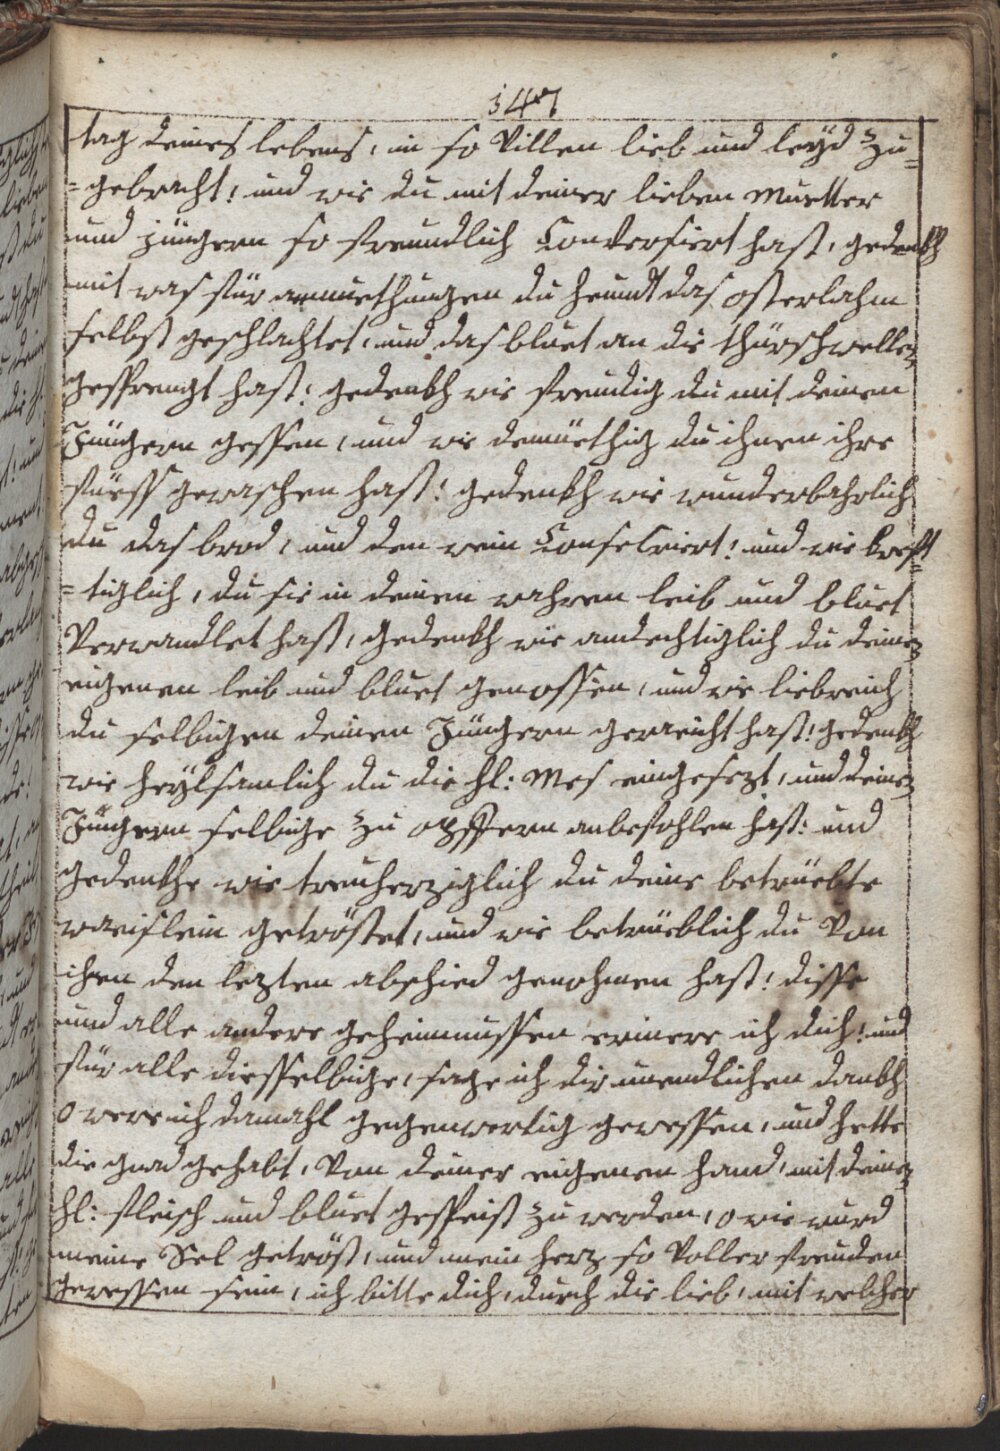 147
tag deines lebens, in so Villen lieb und leÿd zu=
=gebracht! und wie du mit deiner lieben Muetter
und jüngern so freundlich Conversiert hast, gedenkh
mit was für anmuethungen du heundt das osterlahm
selbst geschlachtet, und das bluet an die thürschwellen
gesprengt hast! gedenkh wie freudig du mit deinen
Jüngern gessen, und wie demüethig du ihnen ihre
füess gewaschen hast! gedenkh wie wunderbahrlich
du das brod, und den wein Consecriert! und wie kref=
=tiglich, du sie in deinen wahren leib und bluet
Verwandlet hast, gedenkh wie andechtiglich du deinen
eigenen leib und bluet genossen, und wie liebreich
du selbigen deinen Jüngern gereicht hast! gedenkh
wie heÿlsamlich du die hl: Mes eingesezt, und deinen
Jüngern selbige zu opffern anbefohlen hast: und
gedenkhe wie treuherziglich du deine betrüebte
waislein getröstet, und wie betrüeblich du Von
ihnen den lezten abschied genohmen hast! disse
und alle andere geheimnussen erinere ich dich! und
für alle diesselbige, sage ich dir unendlichen dankh
O were ich damahl gegenwertig gewessen, und hette
die gnad gehabt, Von deiner eigenen hand, mit deinen
hl: fleisch und bluet gespeist zu werden, o wie wurd
meine Sel getröst, und mein herz so Voller freuden
gewessen sein, ich bitte dich, durch die lieb, mit welcher